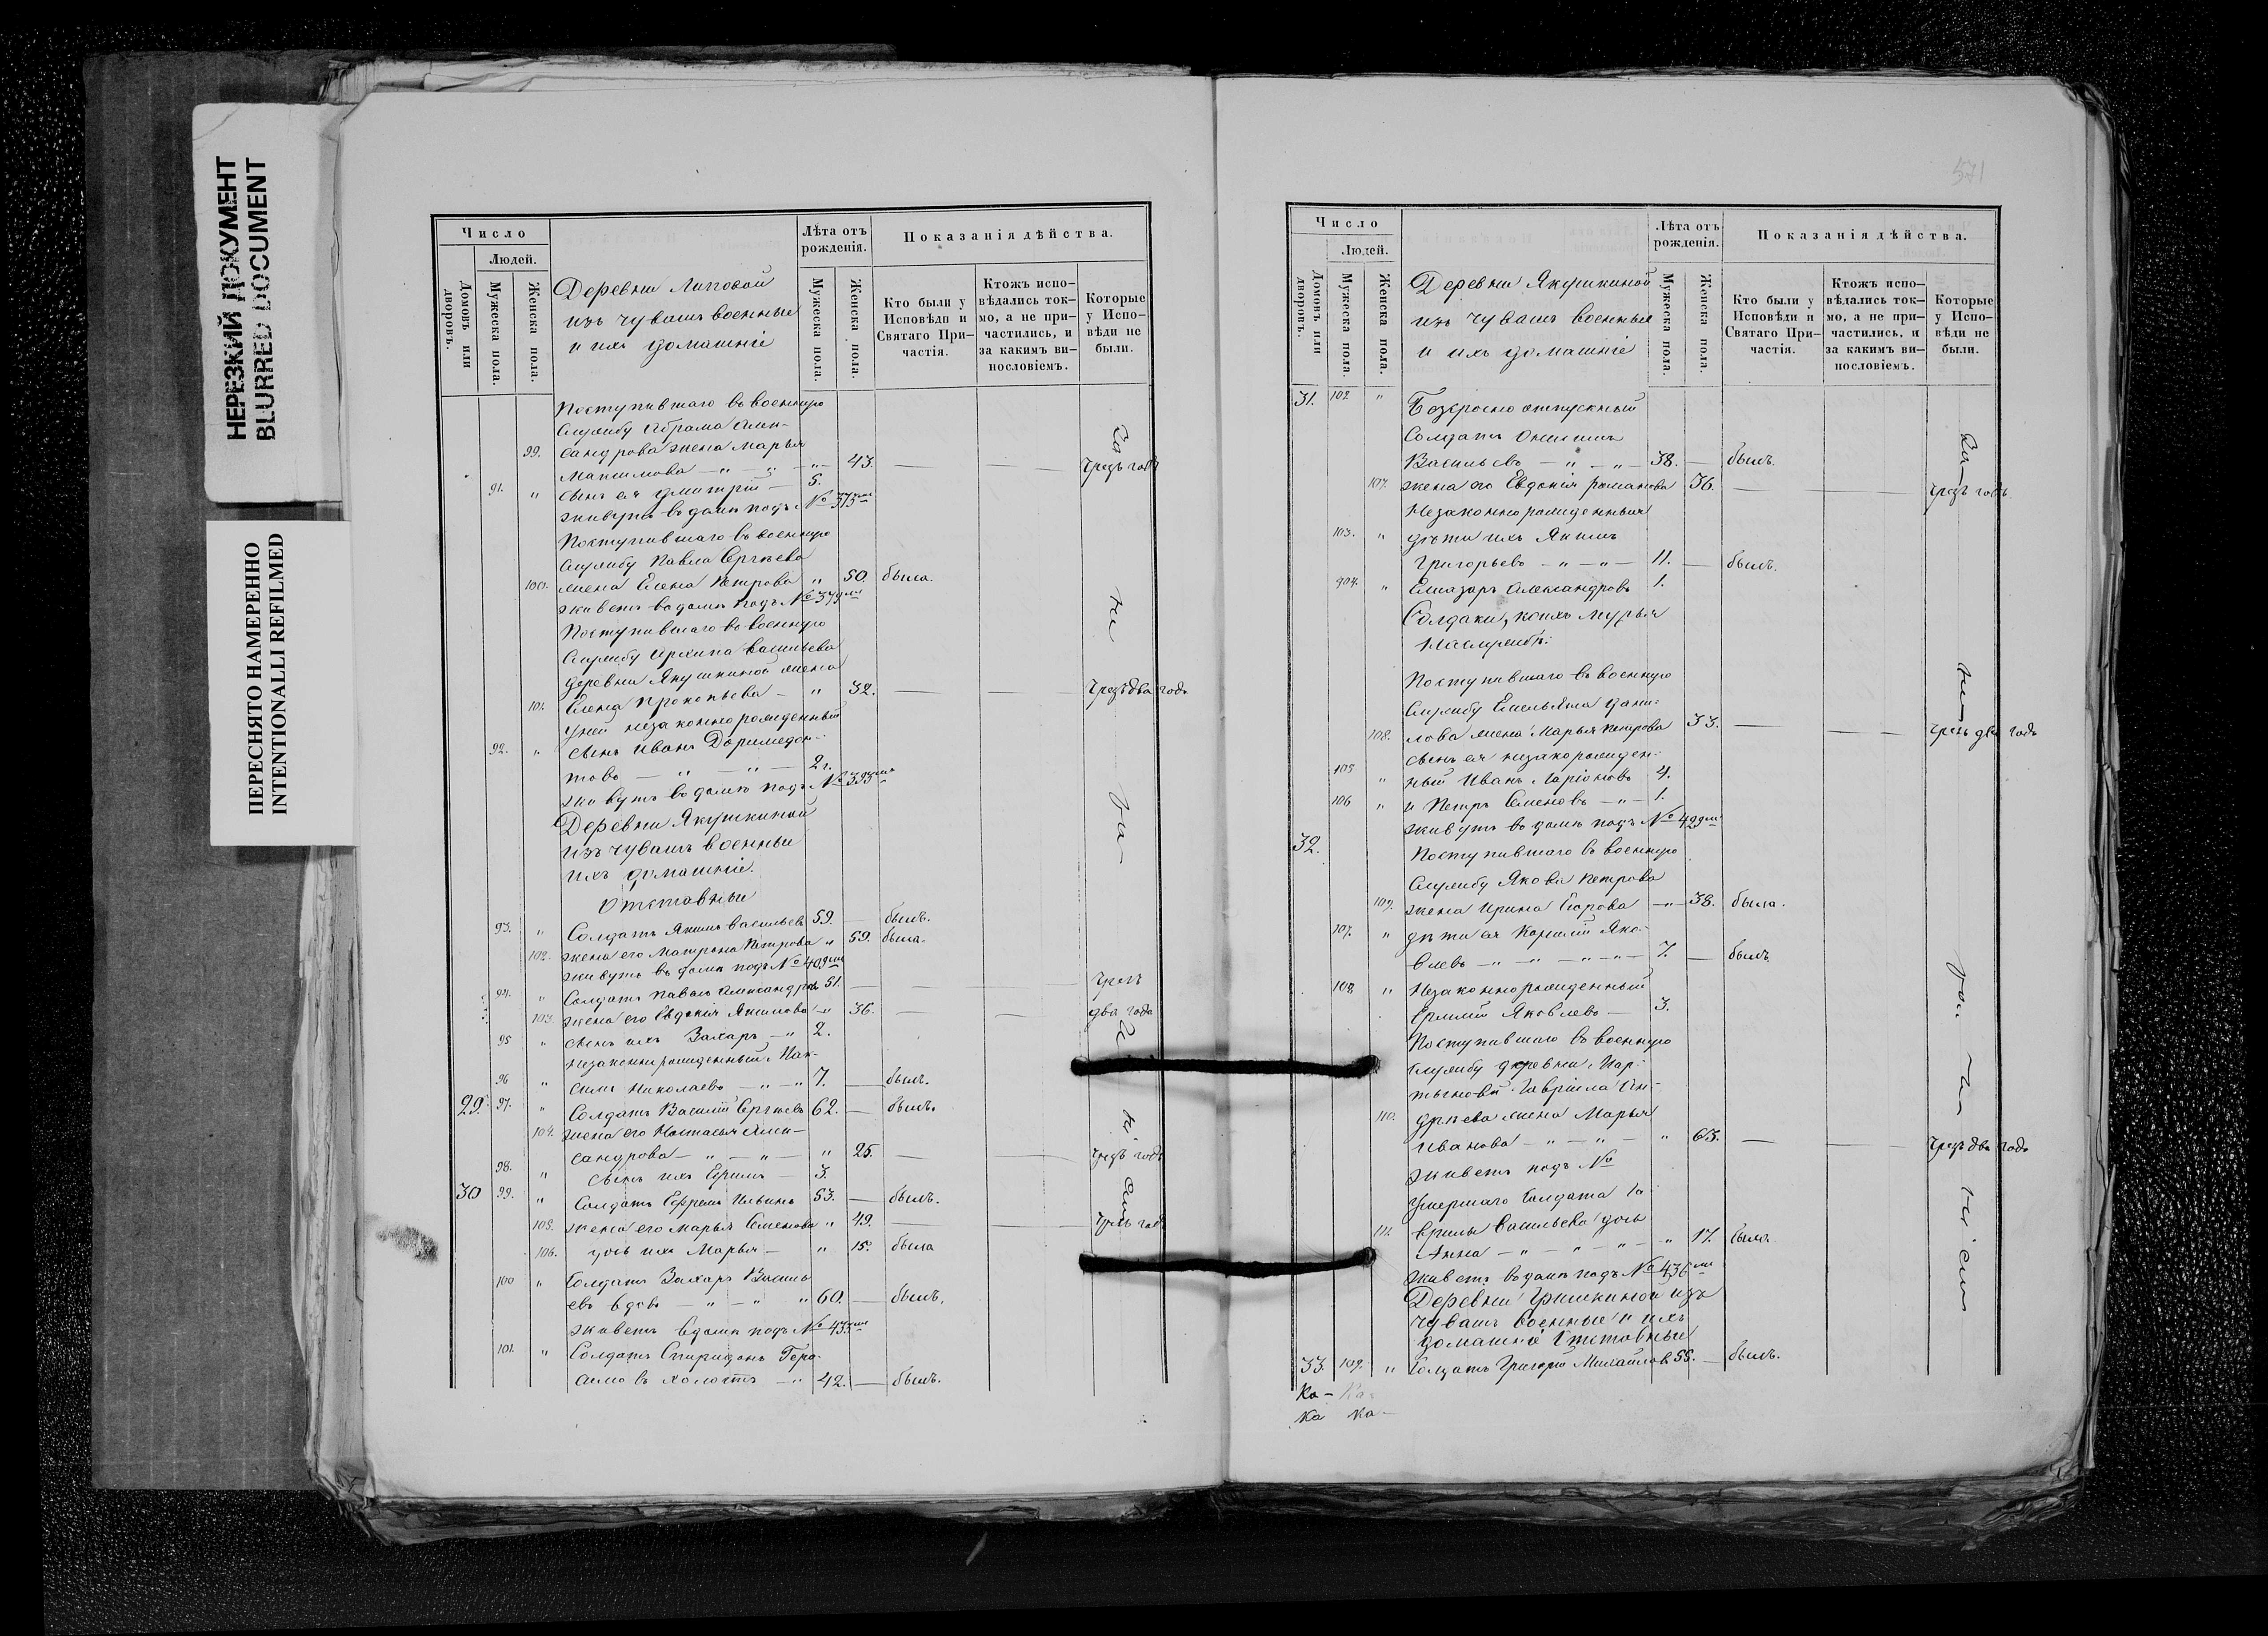 НЕРЕЗКИЙ ДОКУМЕНТ
BLURRED DOCUMENT
ПЕРЕСНЯТО НАМЕРЕННО
INTENTIONALLI REFILMED
Число
Людей.
Домовъ или дворовъ.
Мужеска пола.
Женска пола.
Деревни Липовой
изъ чувашъ военные
и ихъ домашніе
Лѣта отъ рожденія.
Мужеска пола.
Женска пола.
Показанія дѣйства.
Кто были у Исповѣди и Святаго При-частія.
Ктожъ испо-вѣдались ток-мо, а не при-частились, и за какимъ ви-нословіемъ.
Которые у Испо-вѣди не были.
Поступившаго въ военную
службу Абрама Алек-
99. сандрова жена Марья
Максимова — " — " — 43. — — чрезъ годъ
91. " сынъ ея Дмитрій — 5.
живутъ въ домѣ подъ №
Поступившаго въ военную
службу Павла Сергѣева
100. жена Елена Петрова " 50. была.
живетъ въ домѣ подъ №
Поступившаго въ военную
службу Архипа Васильева
деревни Якушкиной жена
101. Елена Прокопьева — " 32. — — чрезъ два года
у ней незаконнорожденный
92. " сынъ Иванъ Доримедон-
товъ — " — " — 2.
живутъ въ домѣ подъ №
Деревни Якушкиной
изъ чувашъ военные
ихъ домашніе.
Отставные
93. " Солдатъ Якимъ Васильевъ 59. — былъ.
102. жена его Матрона Петрова " 59. была.
живутъ въ домѣ подъ №
94. " Солдатъ Павелъ Александровъ 51. — — чрезъ
103. жена его Евдокія Якимова — " 36. — — два года
95 " сынъ ихъ Захаръ — " 2.
незаконнорожденный Мак-
96 " симъ Николаевъ — " — " 7. — былъ.
29. 97. " Солдатъ Василій Сергѣевъ 62. — былъ.
104. жена его Настасья Алек-
сандрова — " — " — " 25. — — чрезъ годъ
98. " сынъ ихъ Ефимъ — 3.
30 99. " Солдатъ Ефремъ Ильинъ 53. — былъ.
105. жена его Марья Семенова " 49. — — чрезъ годъ
106. дочь ихъ Марья — " 15. была
100 " Солдатъ Захаръ Василь
евъ вдовъ — " — " " 60. — былъ.
живетъ въ домѣ подъ №
101. " Солдатъ Спиридонъ Гера-
симовъ холостъ — " 42. — былъ.
571
Число
Людей.
Домовъ или дворовъ.
Мужеска пола.
Женска пола.
Деревни Якушкиной
изъ чувашъ военные
и ихъ домашніе
Лѣта отъ рожденія.
Мужеска пола.
Женска пола.
Показанія дѣйства.
Кто были у Исповѣди и Святаго При-частія.
Ктожъ испо-вѣдались ток-мо, а не при-частились, и за какимъ ви-нословіемъ.
Которые у Испо-вѣди не были.
31. 102 " Безсрочно отпускный
Солдатъ
Васильевъ — " — " — 38. — былъ.
107. жена его Евдокія Романова 36. — — чрезъ годъ.
Незаконнорожденныя
103. " дѣти ихъ Якимъ
Григорьевъ — " — " — 11. — былъ.
904. " Елиазаръ Александровъ 1.
Солдатки, коихъ мужья
на службѣ:
Поступившаго въ военную
службу Емельяна Дани-
108. лова жена Марья Петрова 33. — — чрезъ два года
сынъ ея незаконорожден-
105 " ный Иванъ Ларіоновъ 4.
106 " и Петръ Семеновъ — " — 1.
живутъ въ домѣ подъ №
32. Поступившаго въ военную
службу Якова Петрова
109. жена Ирина Егорова — " — 38. была.
107. " дѣти ея Корнилій Яко-
влевъ — " — " — " — " — 7. — былъ
108 " Незаконнорожденный
Яковлевъ — 3.
Поступившаго въ военную
службу деревни Мар-
тыновой Гавріила Ан-
110. дрѣева жена Марья
Иванова — " — " — " 63. — — чрезъ два года
живетъ подъ №
Умершаго Солдата
111. Васильева дочь
Анна — " — " — " — " 17. была
живетъ въ домѣ подъ № 436
Деревни Гришкиной изъ
чувашъ военные и ихъ
домашніе Отставные
33. 109. " Солдатъ Григорій Михайловъ 55. — былъ.
Ка- Ка-
Ка Ка-